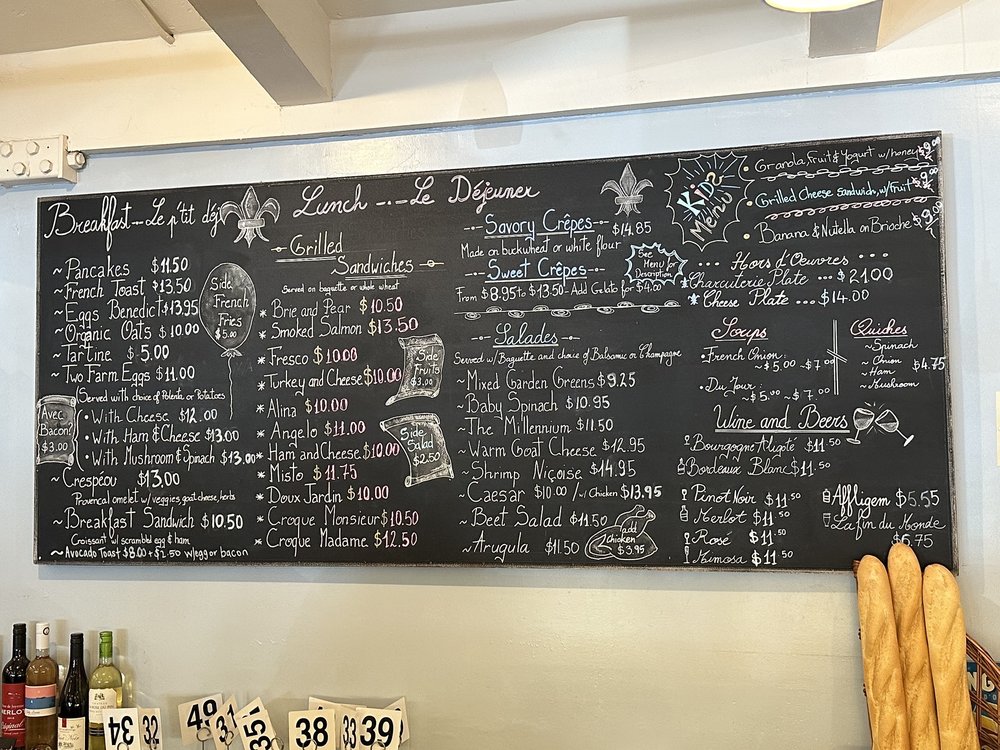 Breakfast -- Le p'tit déj
~ Pancakes $11.50
~ French Toast $13.50
~ Eggs Benedict $13.95
~ Organic Oats $10.00
~ Tartine $5.00
~ Two Farm Eggs $11.00
Served with choice of Polenta or Potatoes
• With Cheese $12.00
• With Ham & Cheese $13.00
• With Mushroom & Spinach $13.00
~ Crespéou $13.00
Provençal omelet w/ veggies, goat cheese, herbs
~ Breakfast Sandwich $10.50
Croissant w/ scrambled egg & ham
~ Avocado Toast $8.00 + $2.50 w/ egg or bacon
Avec
Bacon
$3.00
Side
French
Fries
$5.00
Lunch -- Le Déjeuner
Grilled
Sandwiches
Served on baguette or whole wheat
* Brie and Pear $10.50
* Smoked Salmon $13.50
* Fresco $10.00
* Turkey and Cheese $10.00
* Alina $10.00
* Angelo $11.00
* Ham and Cheese $10.00
* Misto $11.75
* Doux Jardin $10.00
* Croque Monsieur $10.50
* Croque Madame $12.50
Side
Fruits
$3.00
Side
Salad
$2.50
Savory Crêpes $14.85
Made on buckwheat or white flour
Sweet Crêpes
From $8.95 to $13.50 - Add Gelato for $4.00
See
Menu for
Description
Salades
Served w/ Baguette and choice of Balsamic or Champagne
~ Mixed Garden Greens $9.25
~ Baby Spinach $10.95
~ The Millennium $11.50
~ Warm Goat Cheese $12.95
~ Shrimp Niçoise $14.95
~ Caesar $10.00 / w/ Chicken $13.95
~ Beet Salad $11.50
~ Arugula $11.50
add
chicken
$3.95
Kids
Menu
• Granola Fruit & Yogurt w/ honey $9.00
• Grilled Cheese Sandwich, w/ fruit $9.00
• Banana & Nutella on Brioche $9.00
Hors d'Oeuvres
Charcuterie Plate ... $21.00
Cheese Plate ... $14.00
Soups
• French Onion:
~$5.00 ~$7.00
• Du Jour:
~$5.00 ~$7.00
Quiches
~ Spinach
~ Onion
~ Ham $4.75
~ Mushroom
Wine and Beers
Bourgogne Aligoté $11.50
Bordeaux Blanc $11.50
Pinot Noir $11.50
Merlot $11.50
Rosé $11.50
Mimosa $11.50
Affligem $5.55
La fin du Monde
$6.75
MERLOT
34
32
40
31
35
38
33
39